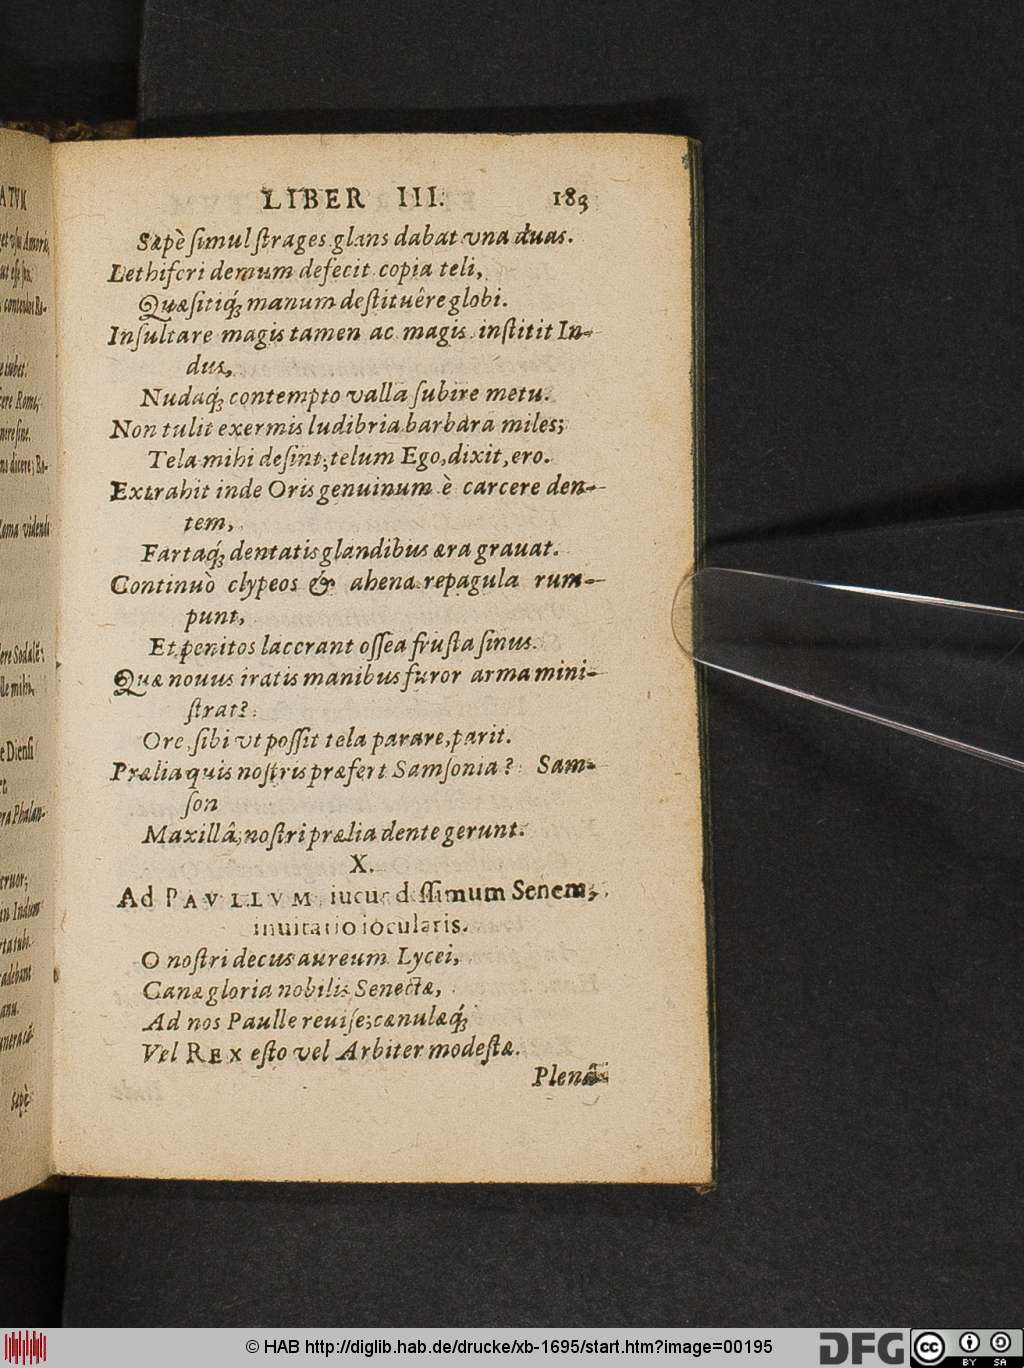 LIBER III. 183
Sæpè ſimul ſtrages glans dabat vna duas.
Lethiferi demum defecit copia teli,
Quæſitiq́; manum deſtituêre globi.
Inſultare magis tamen ac magis inſtitit In-
dus,
Nudaq́; contempto valla ſubire metu.
Non tulit exermis ludibria barbara miles;
Tela mihi deſint; telum Ego, dixit, ero.
Extrahit inde Oris genuinum è carcere den-
tem,
Fartaq́; dentatis glandibus æra grauat.
Continuò clypeos & ahena repagula rum-
punt,
Et penitos lacerant oſſea fruſta ſinus.
Quæ nouus iratis manibus furor arma mini-
ſtrat?
Ore ſibi vt poſſit tela parare, parit.
Prælia quis noſtris præfert Samſonia? Sam-
ſon
Maxillâ; noſtri prælia dente gerunt.
X.
Ad PAVLLVM iucundiſſimum Senem,
inuitatio iocularis.
O noſtri decus aureum Lycei,
Canæ gloria nobilis Senectæ,
Ad nos Paulle reuiſe; cænulæq́;
Vel REX eſto vel Arbiter modeſtæ.
Plenâ
ATVM
ſæpè
© HAB http://diglib.hab.de/drucke/xb-1695/start.htm?image=00195
DFG
cc BY SA